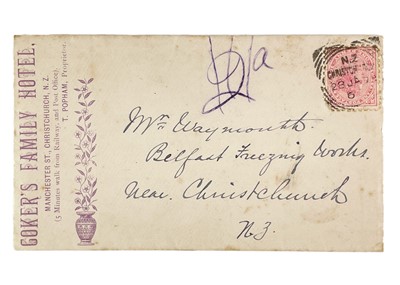 COKER'S FAMILY HOTEL,
MANCHESTER ST., CHRISTCHURCH, N.Z.
(5 Minutes walk from Railway and Post Office).
T. POPHAM, Proprietor.
N.Z
CHRISTCHURCH
28 JA
6
Mrs Waymouth
Belfast Freezing Works.
Near Christchurch
N.Z.